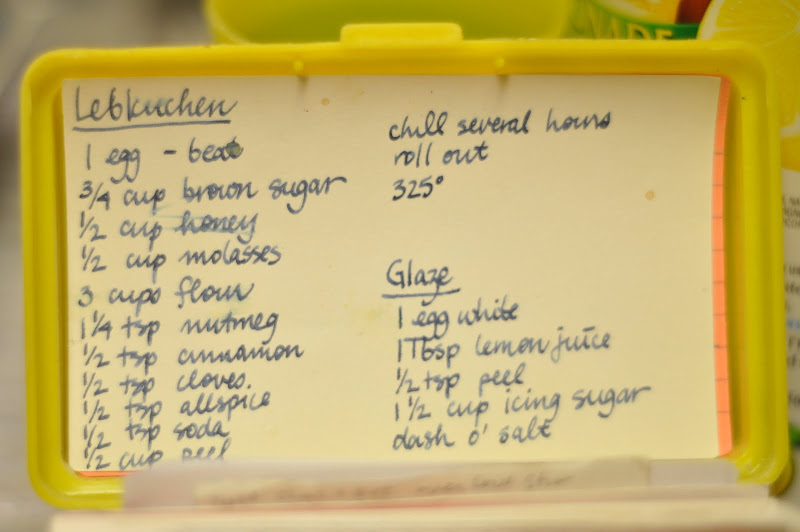 Lebkuchen
1 egg - beat
3/4 cup brown sugar
1/2 cup honey
1/2 cup molasses
3 cups flour
1 1/4 tsp nutmeg
1/2 tsp cinnamon
1/2 tsp cloves.
1/2 tsp allspice
1/2 tsp soda
1/2 cup peel
chill several hours
roll out
325°
Glaze
1 egg white
1 Tbsp lemon juice
1/2 tsp peel
1 1/2 cup icing sugar
dash o' salt